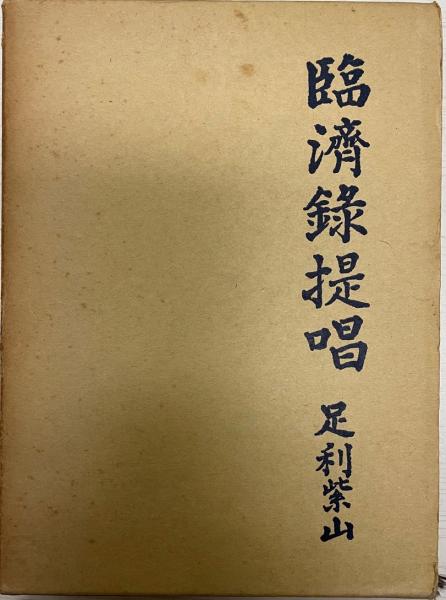 臨濟錄提唱
足利紫山